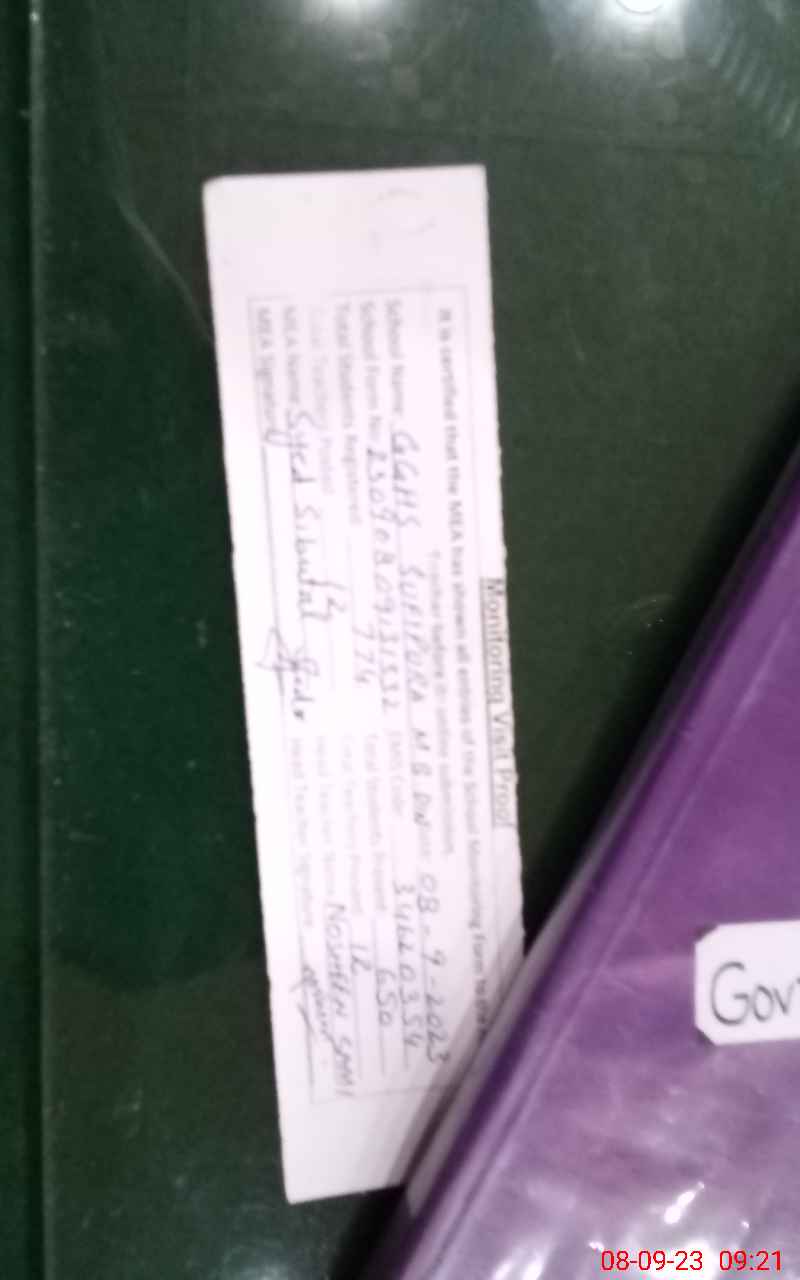 Monitoring Visit Proof
It is certified that the MEA has shown all entries of the School Monitoring Form to the
Teacher before its online submission.
School Name: GGHS SUFIPURA M B DIN Date: 08-9-2023
School Form No: 2309080931532 EMIS Code: 34620354
Total Students Registered: 774 Total Students Present: 650
Total Teachers Posted: 12 Total Teachers Present: 12
MEA Name: Syed Head Teacher Name: NOSHEEN SAMI
MEA Signature Head Teacher Signature:
Gov
08-09-23 09:21